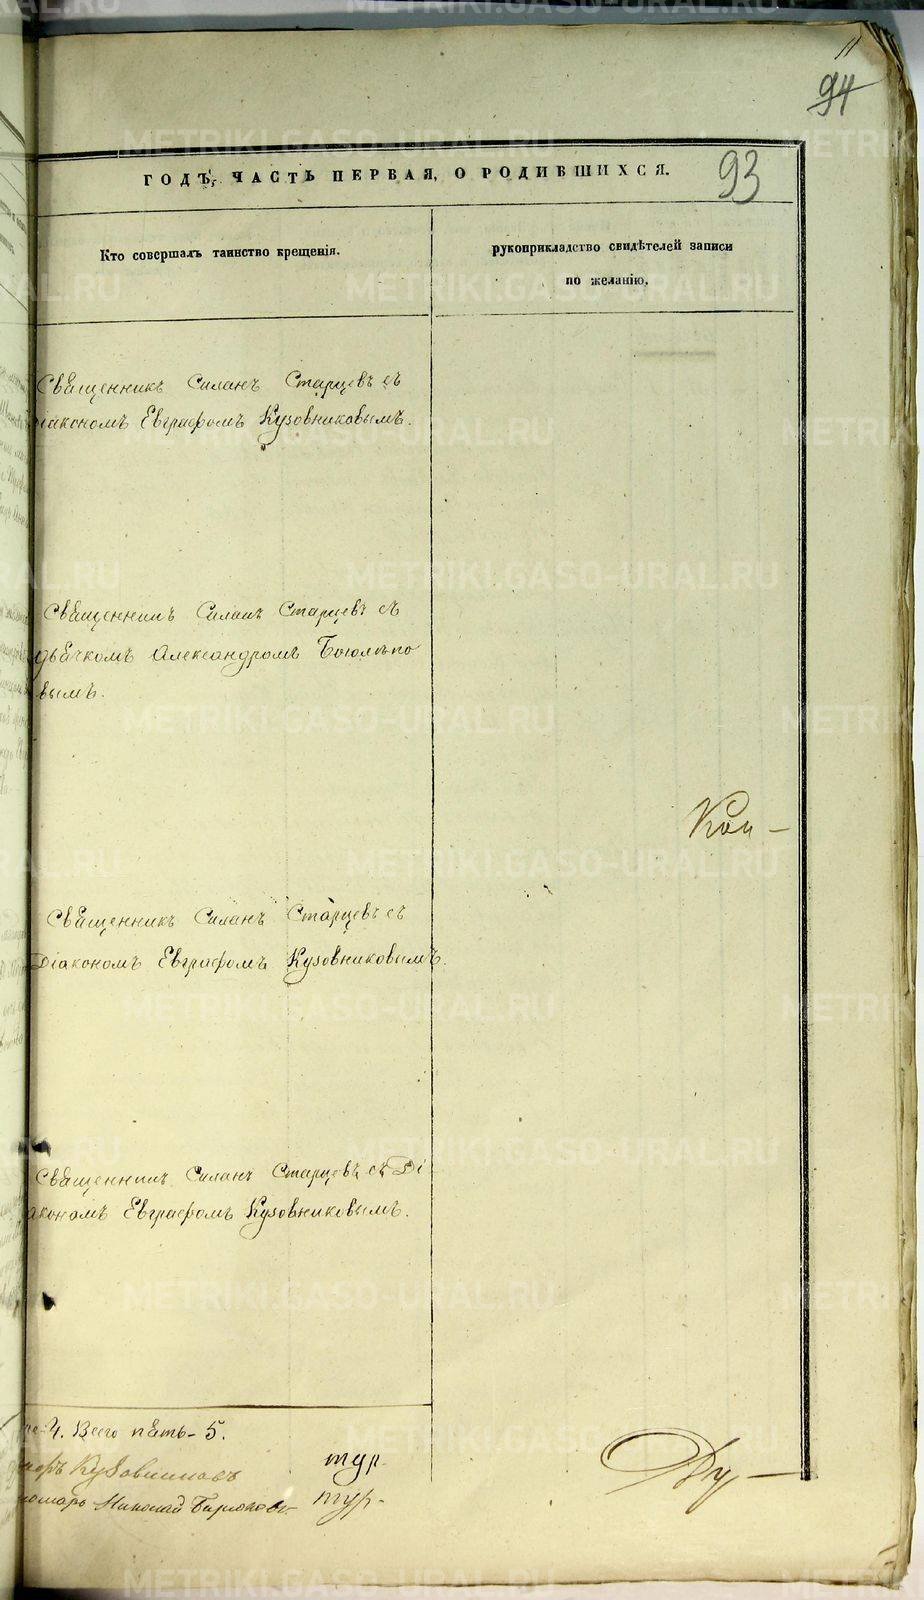 11
94
93
ГОДЪ, ЧАСТЬ ПЕРВАЯ, О РОДИВШИХСЯ.
Кто совершалъ таинство крещенія.
рукоприкладство свидѣтелей записи
по желанію.
Священникъ Силанъ Старцевъ съ
Діакономъ Евграфомъ Кузовниковымъ.
Священникъ Силанъ Старцевъ съ
дьячкомъ Александромъ Боголѣпо
вымъ.
Кон-
Священникъ Силанъ Старцевъ съ
Діакономъ Евграфомъ Кузовниковымъ.
Священникъ Силанъ Старцевъ съ Ді
акономъ Евграфомъ Кузовниковымъ.
4. Всего пять-5.
Кузовниковъ тур.
Николай Бирюковъ тур.
Ду-
METRIKI.GASO-URAL.RU